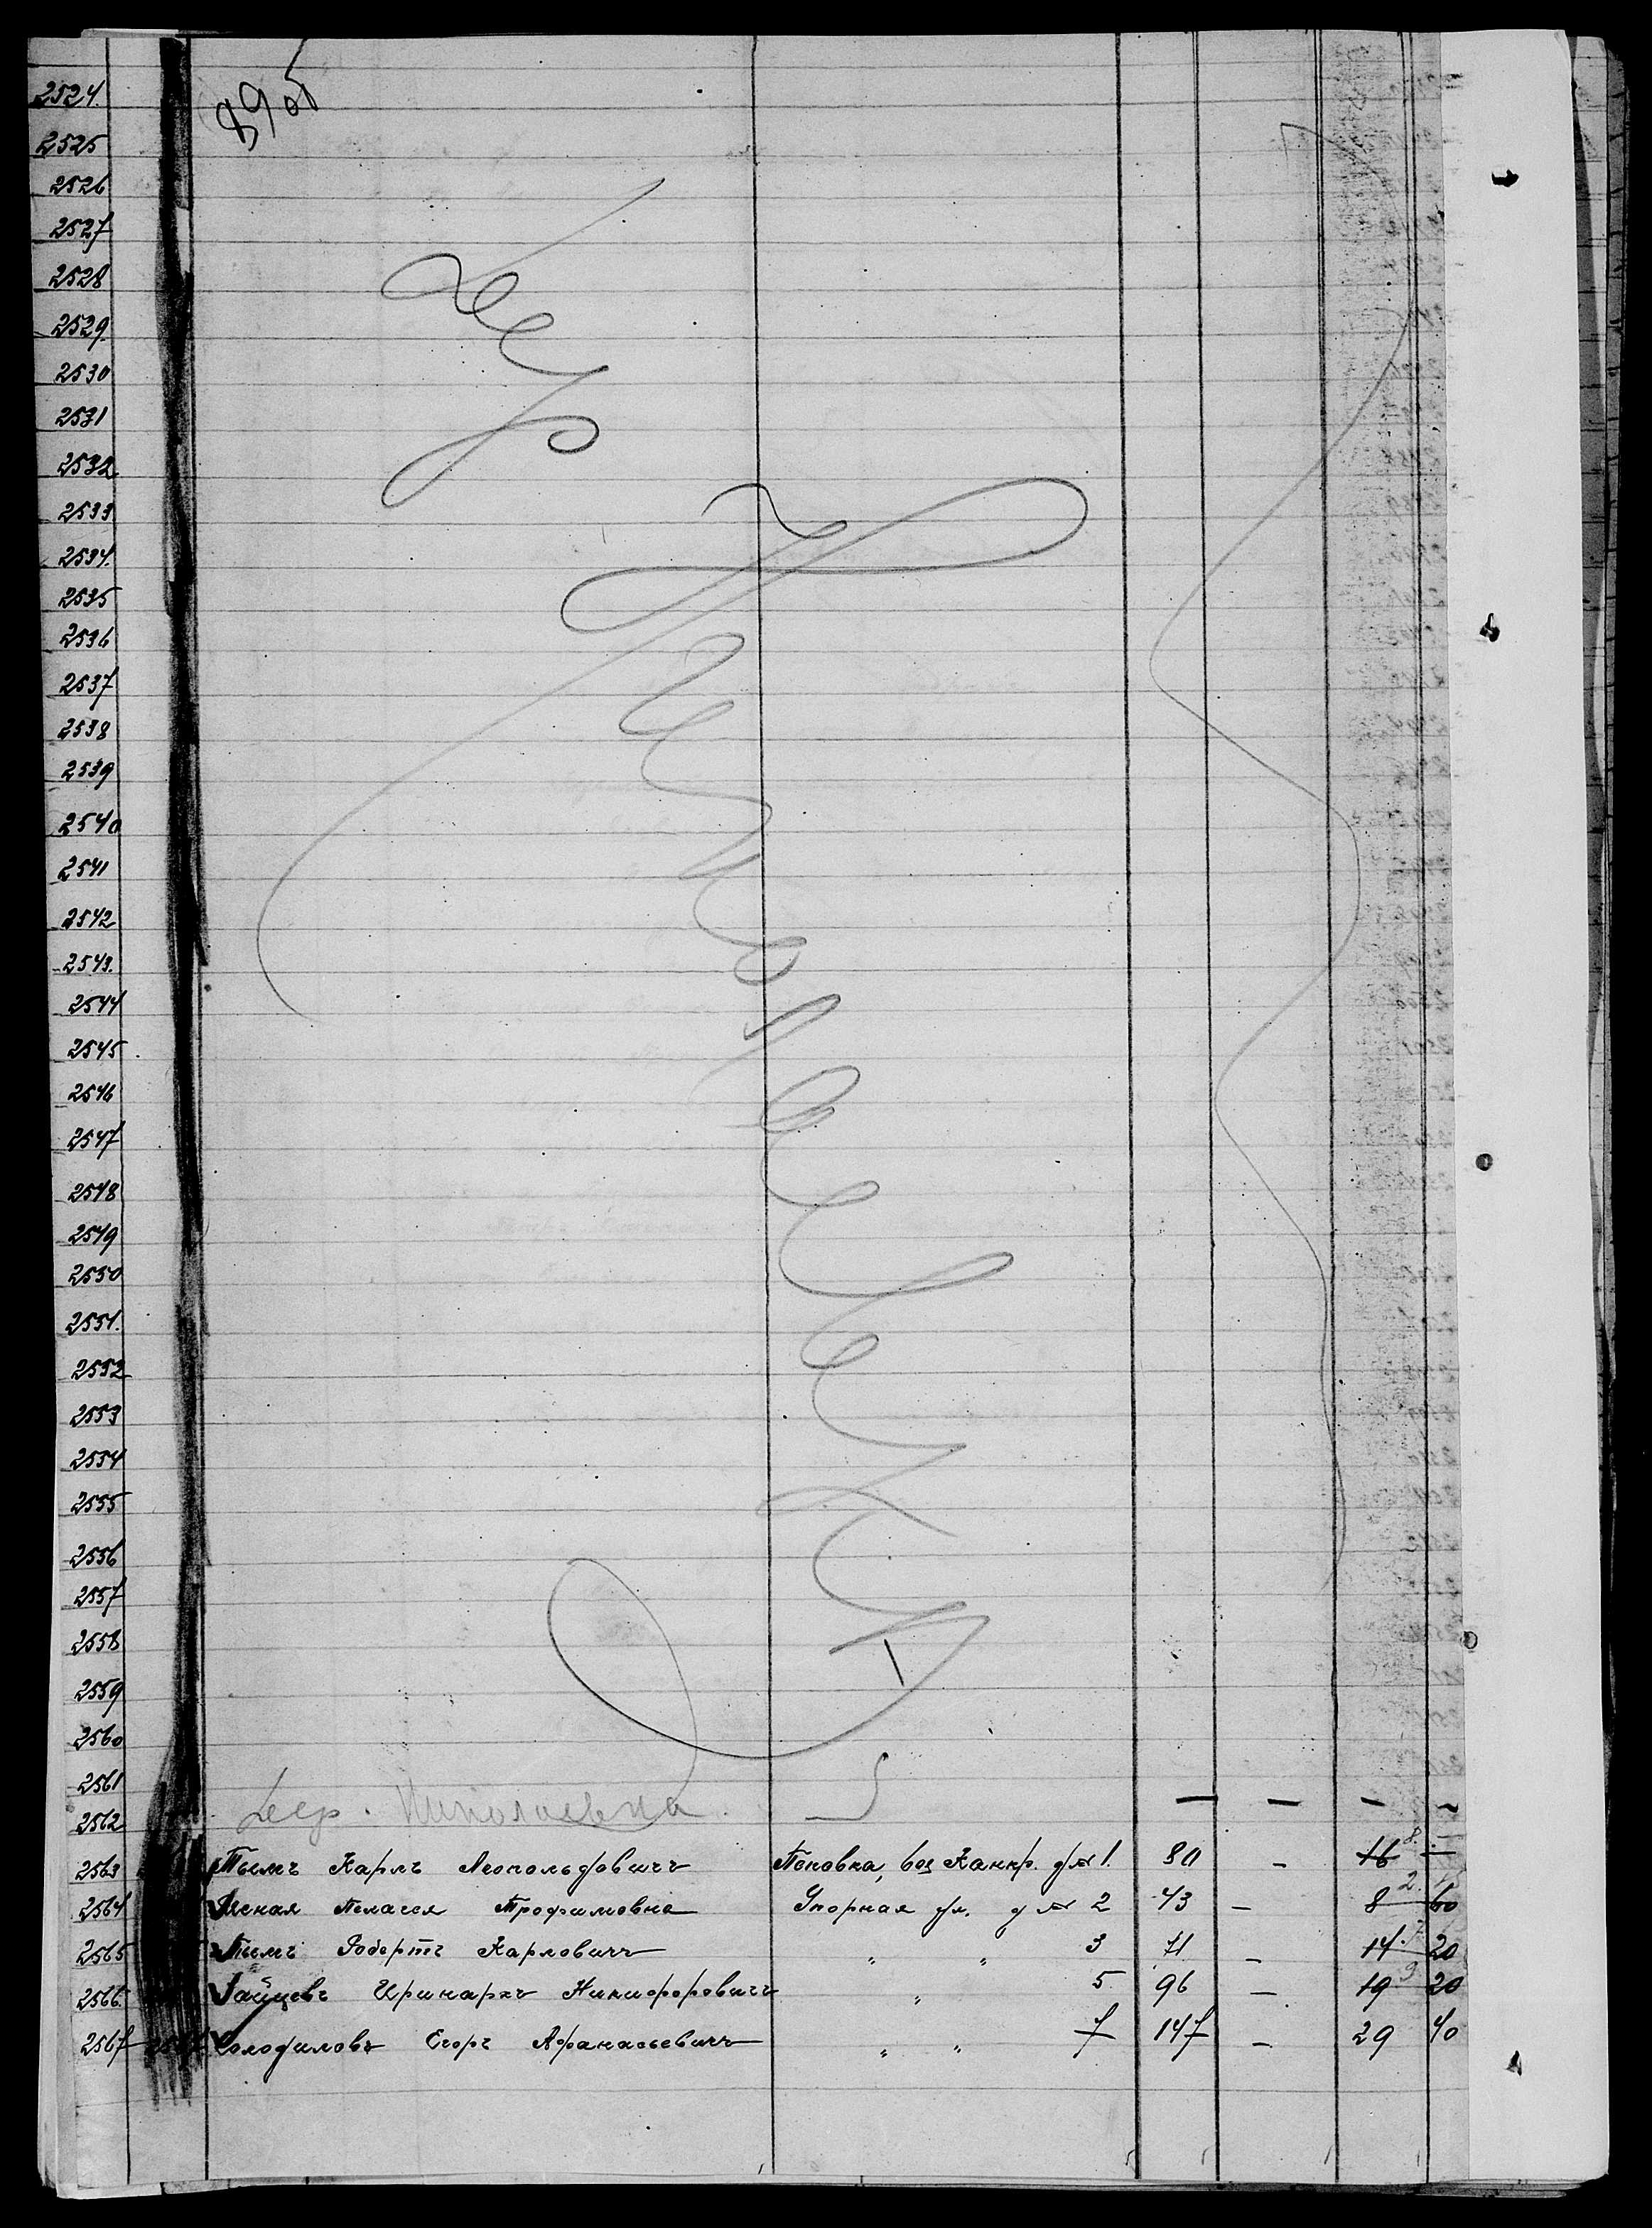 89 об
2524.
2525
2526
2527
2528
2529.
2530
2531
2532
2533
2534.
2535
2536
2537
2538
2539
2540
2541
2542
2543.
2544
2545
2546
2547
2548
2549
2550
2551.
2552
2553
2554
2555
2556
2557
2558
2559
2560
2561
2562 Дер. Николаевка. — — — —
2563 Тымъ Карлъ Леопольдовичъ 1. 80 — 16 —
2564 Ясная Пелагея Трофимовна Упорная ул. д № 2 43 — 8 60
2565 Тымъ Робертъ Карловичъ " " 3 71 — 14 20
2566. Зайцевъ Иринархъ Никифоровичъ " 5 96 — 19 20
2567 Солодиловъ Егоръ Афанасьевичъ " " 7 147 — 29 40